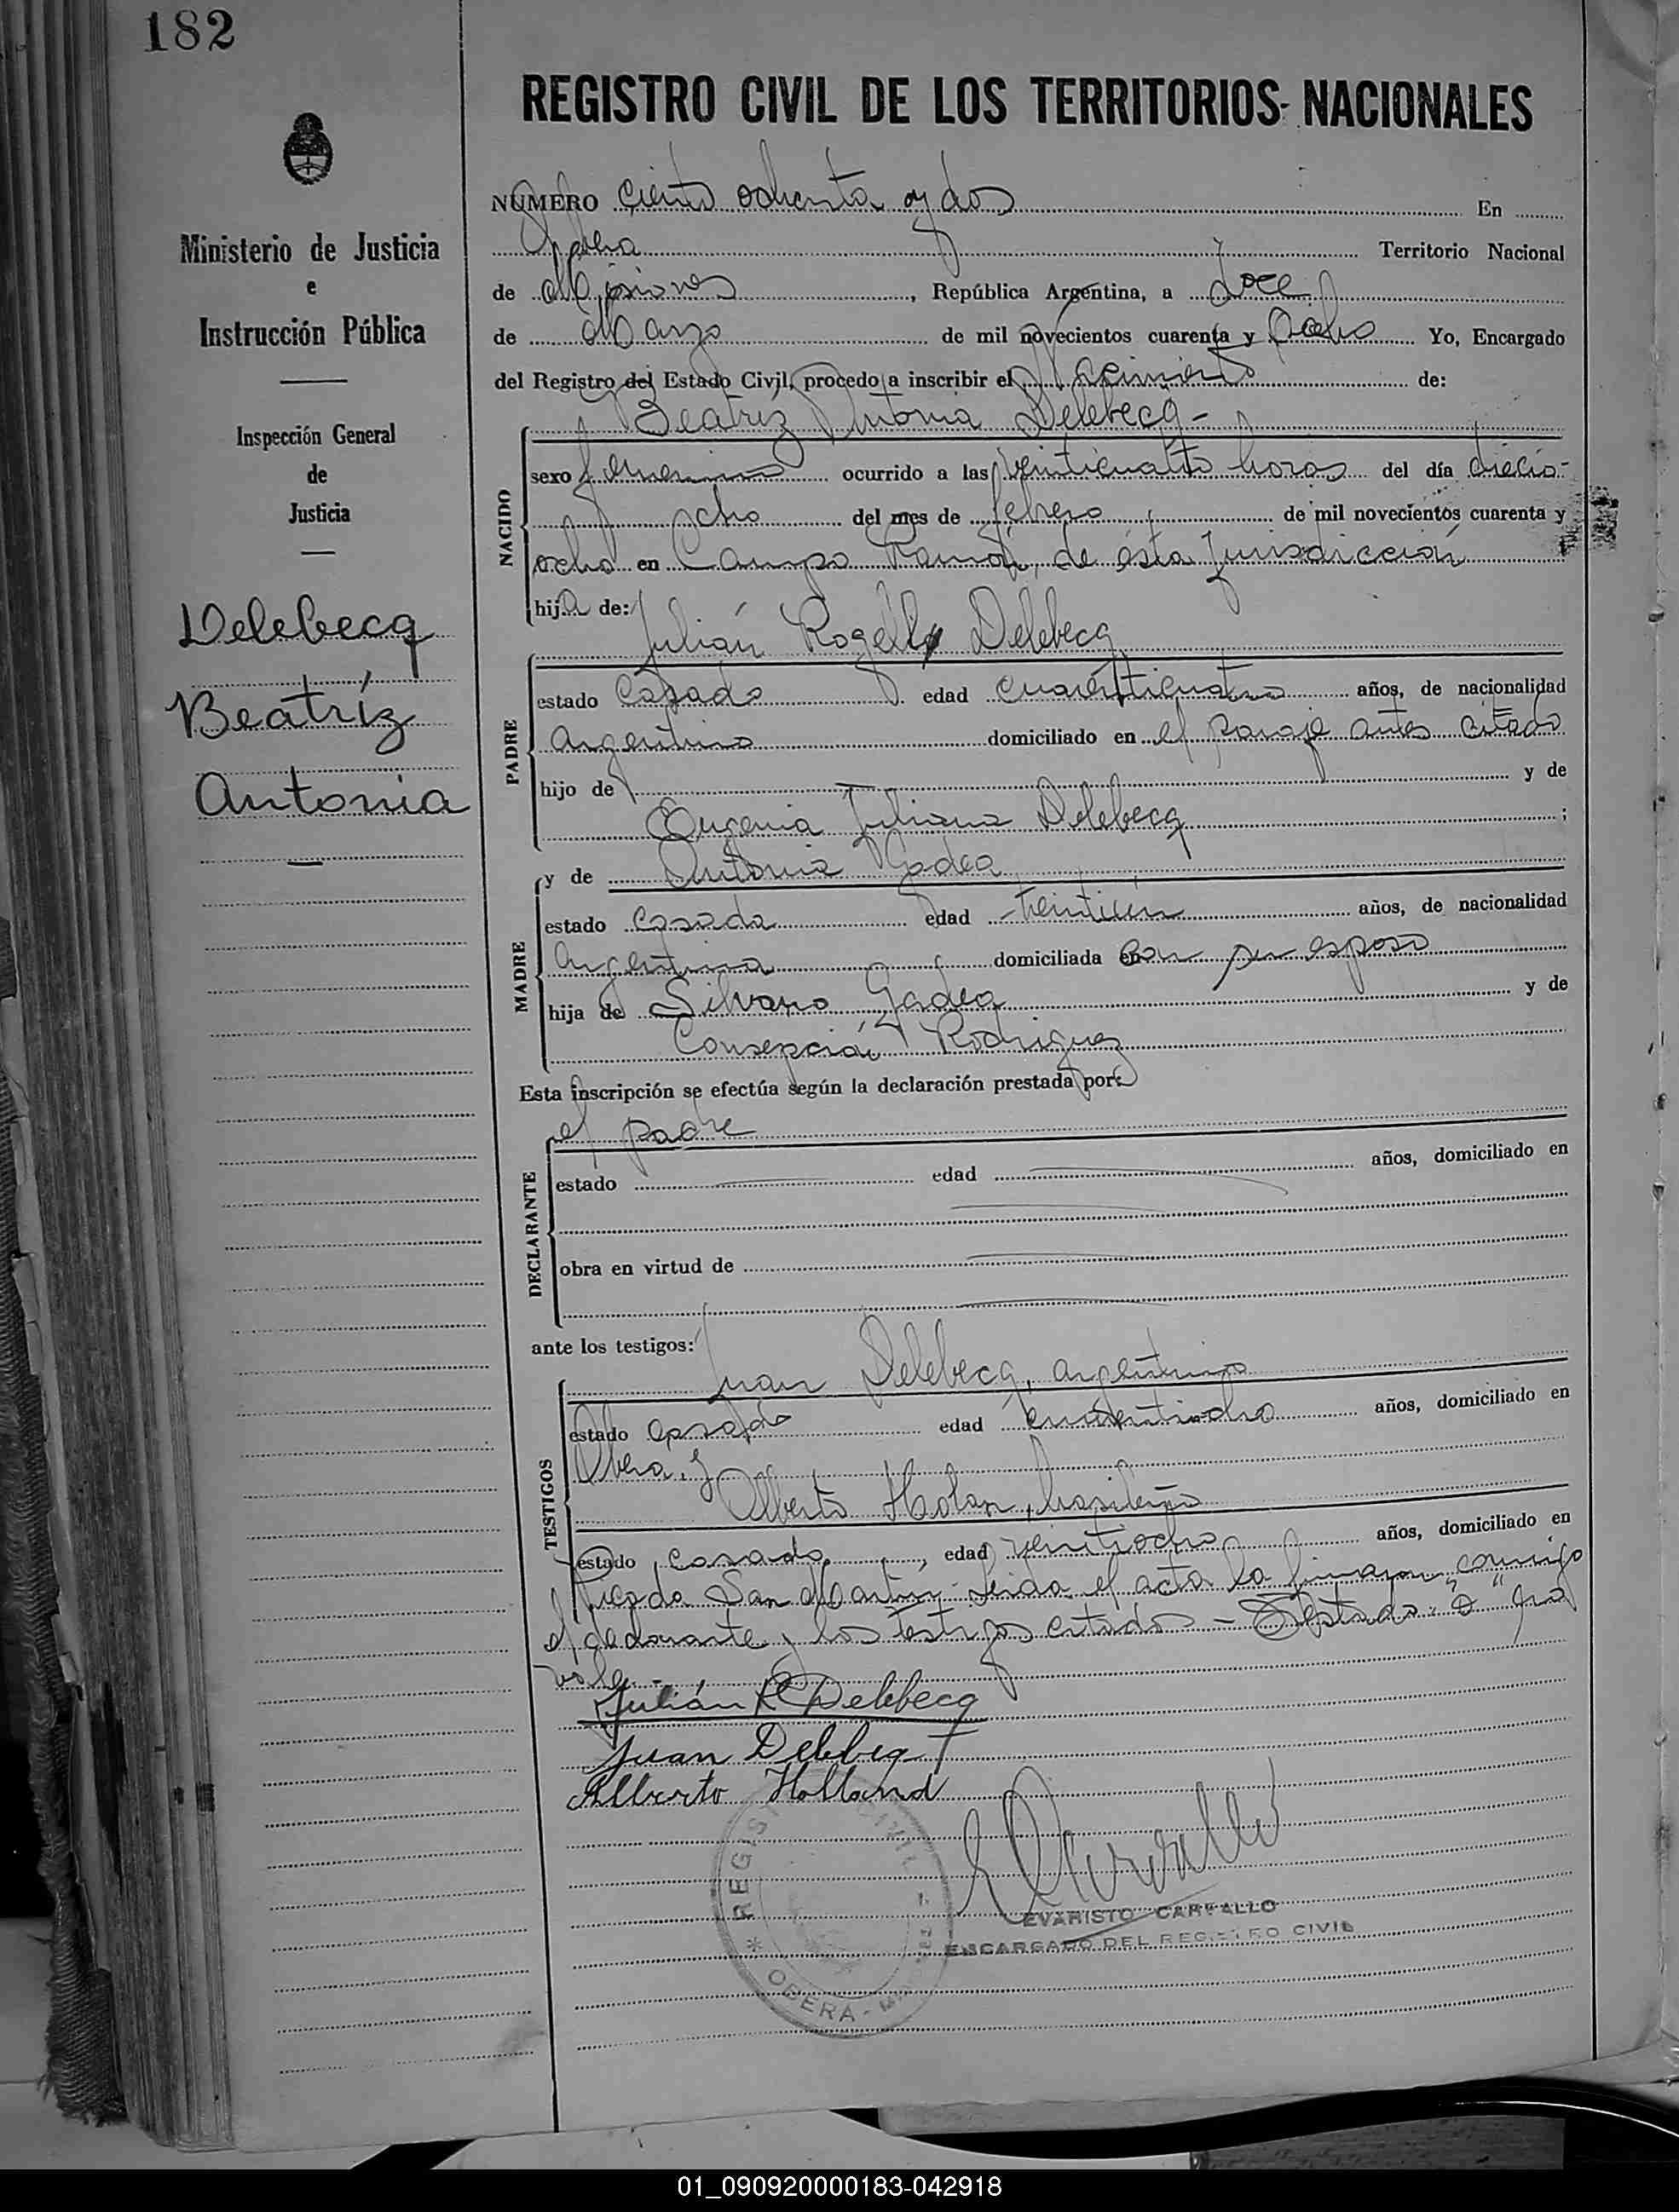 182
REGISTRO CIVIL DE LOS TERRITORIOS NACIONALES
Ministerio de Justicia
e
Instrucción Pública
Inspección General
de
Justicia
Delebecq
Beatríz
Antonia
NÚMERO ciento ochenta y dos En
Obera Territorio Nacional
de Misiones, República Argentina, a doce
de Marzo de mil novecientos cuarenta y ocho Yo, Encargado
del Registro del Estado Civil, procedo a inscribir el Nacimiento de:
Beatríz Antonia Delebecq-
NACIDO
sexo femenino ocurrido a las veinticuatro horas del día diecio-
ocho del mes de febrero de mil novecientos cuarenta y
ocho en Campo Ramón, de ésta Jurisdicción
hija de:
Julián Rogelio Delebecq
PADRE
estado Casado edad cuarenticuatro años, de nacionalidad
argentino domiciliado en el paraje antes citado
hijo de y de
Eugenia Juliana Delebecq ;
y de Antonia Gadea
MADRE
estado casada edad treintiún años, de nacionalidad
argentina domiciliada en con su esposo
hija de Silvano Gadea y de
Consepción Rodriguez
Esta inscripción se efectúa según la declaración prestada por:
el padre
DECLARANTE
estado edad años, domiciliado en
obra en virtud de
ante los testigos:
Juan Delebecq, argentino
TESTIGOS
estado casado edad años, domiciliado en
Obera, y
Alberto Holan, brasileño
estado casado, edad veintiocho años, domiciliado en
Picada San Martín- Leida el acta la firmaron conmigo
el declarante y los testigos citados - Testado: "o" no
vale.
Julián R Delebecq
Juan Delebeq
Alberto Holland
REGISTRO CIVIL
* OBERA -
EVARISTO CARVALLO
ENCARGADO DEL REGISTRO CIVIL
01_090920000183-042918